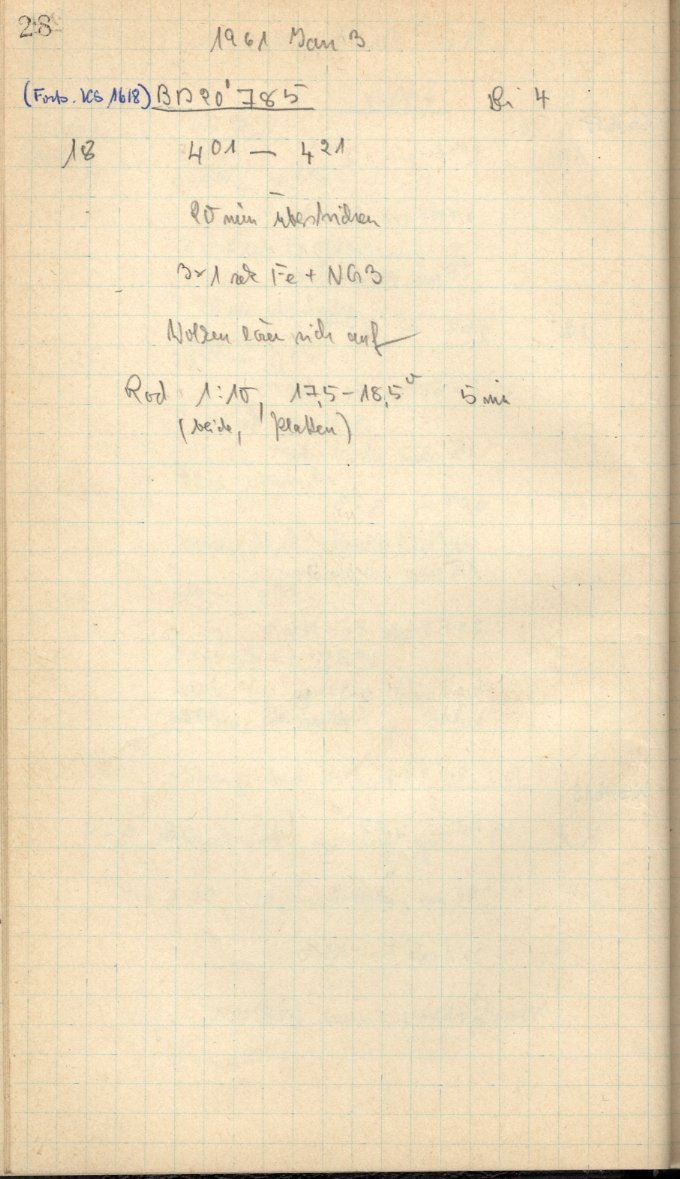 28
1961 Jan 3
(Forts. KB 1618) BD 20° 785 Bi 4
18 4 01 — 4 21
20 min überstrichen
3x1 sek Fe + NG3
Wolken lösen sich auf
Rod 1:10, 17,5-18,5° 5 min
(beide, Platten)